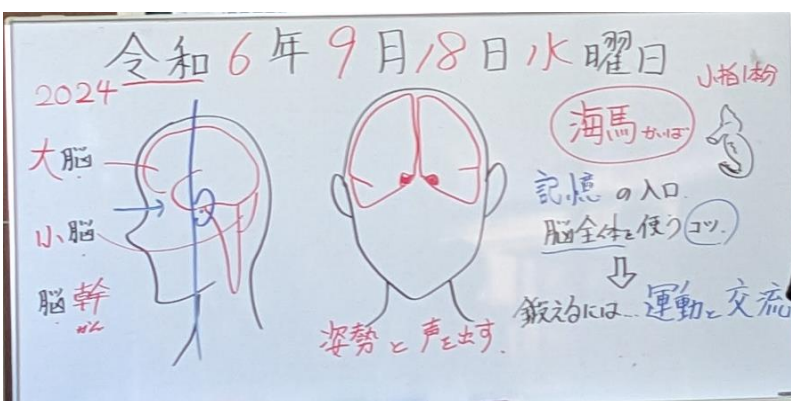 令和6年9月18日水曜日
2024
大脳
小脳
脳幹
かん
姿勢と声を出す.
小指1本分
海馬かいば
記憶の入口.
脳全体を使うコツ.
鍛えるには…運動と交流